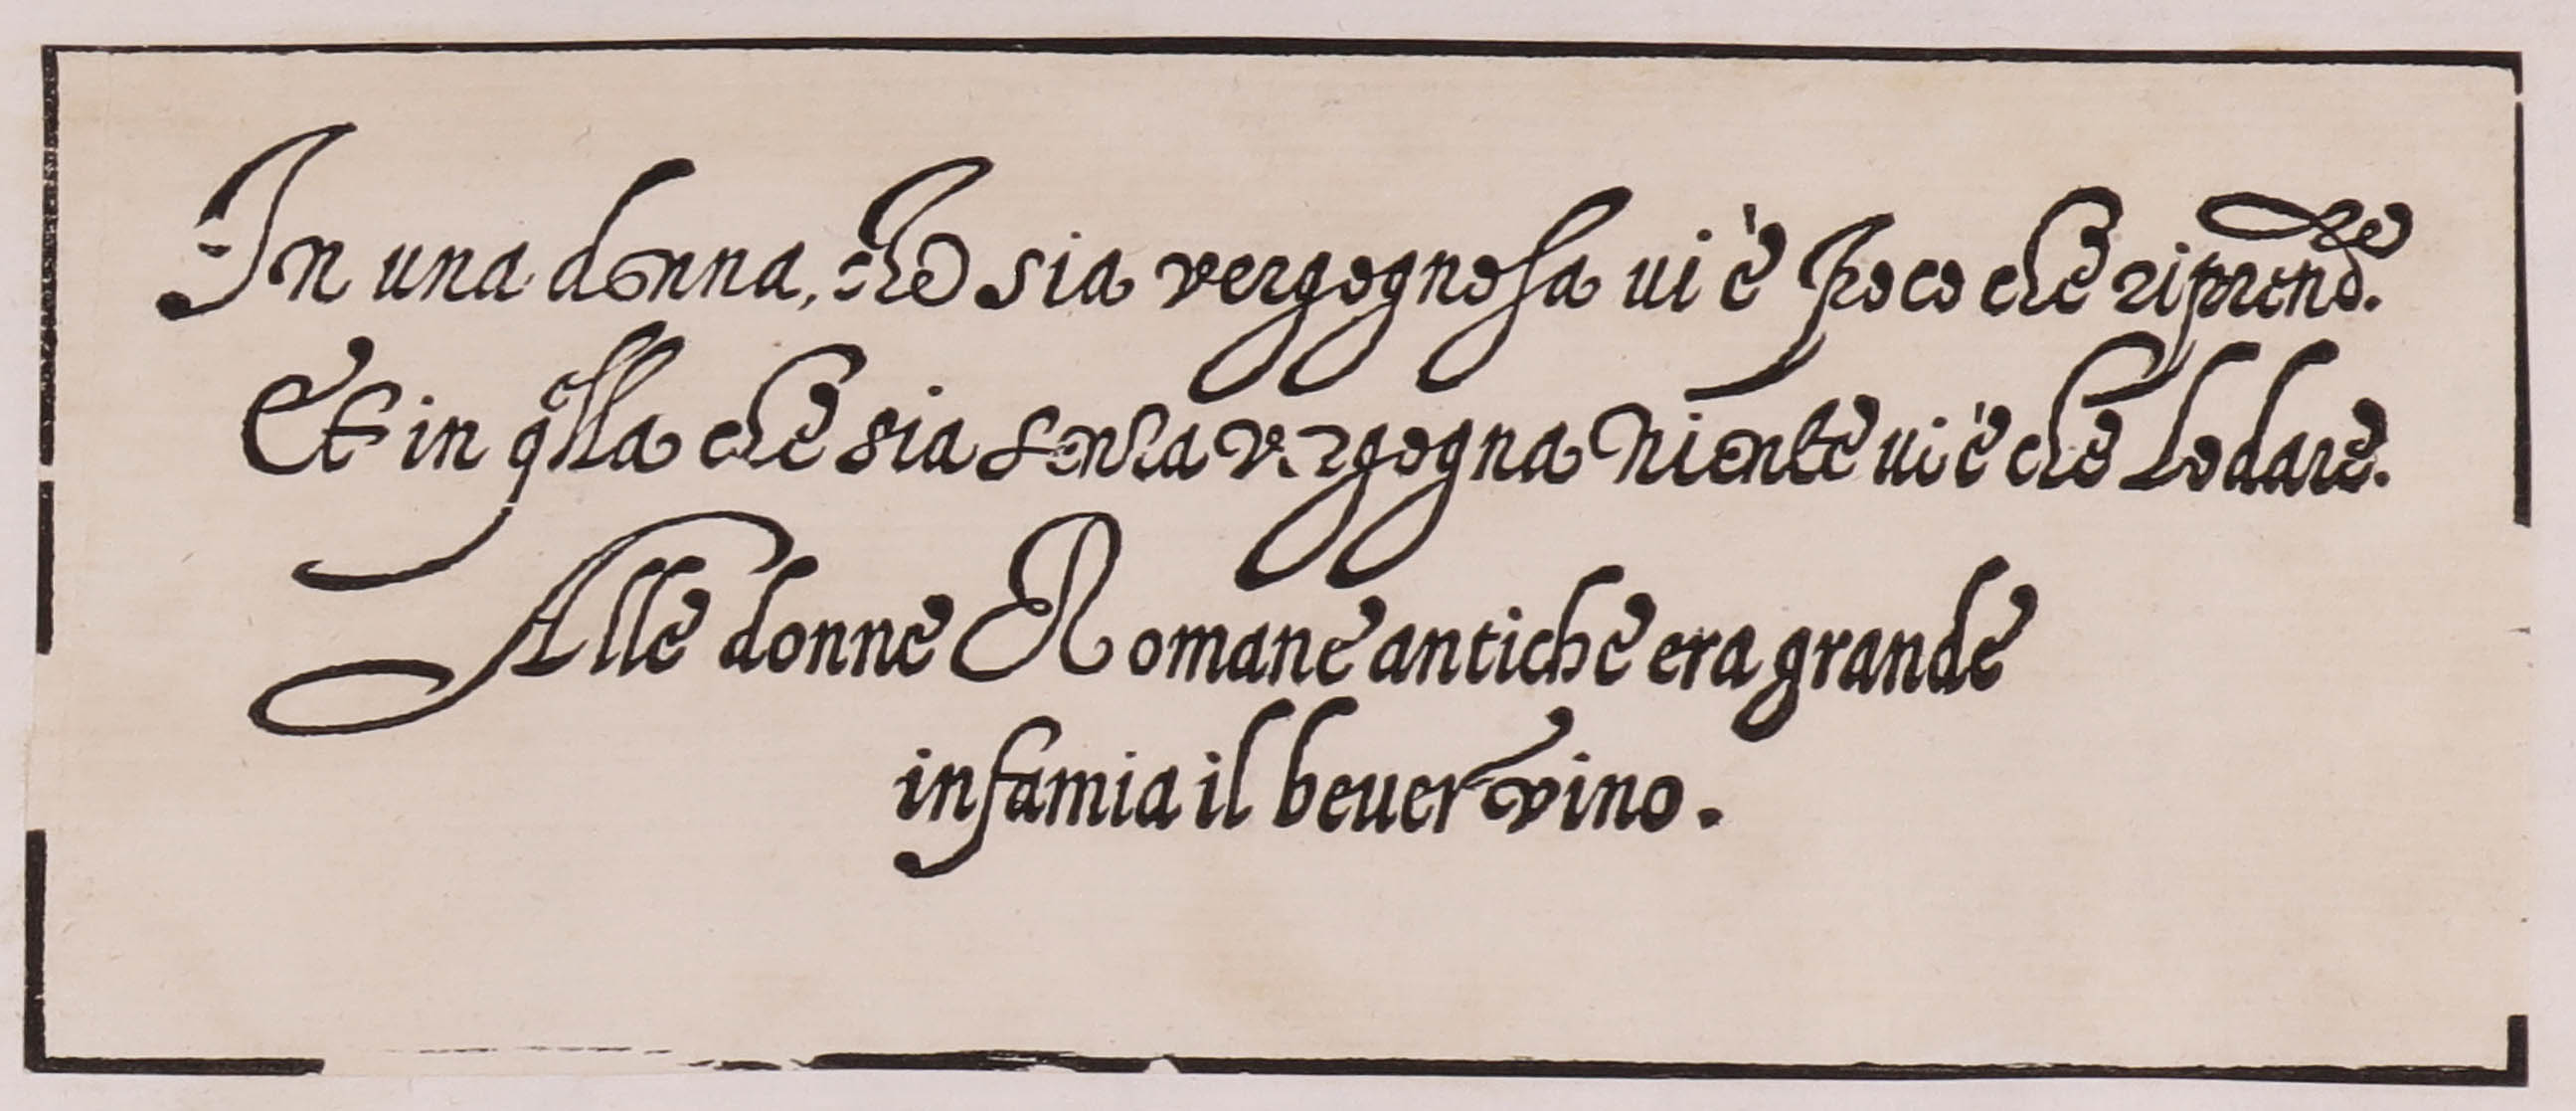 In una donna, che sia vergognosa ui è poco che riprend.re
Et in qlla che sia senza vergogna Niente ui è che Lodare.
Alle donne Romane antiche era grande
infamia il beuer vino.